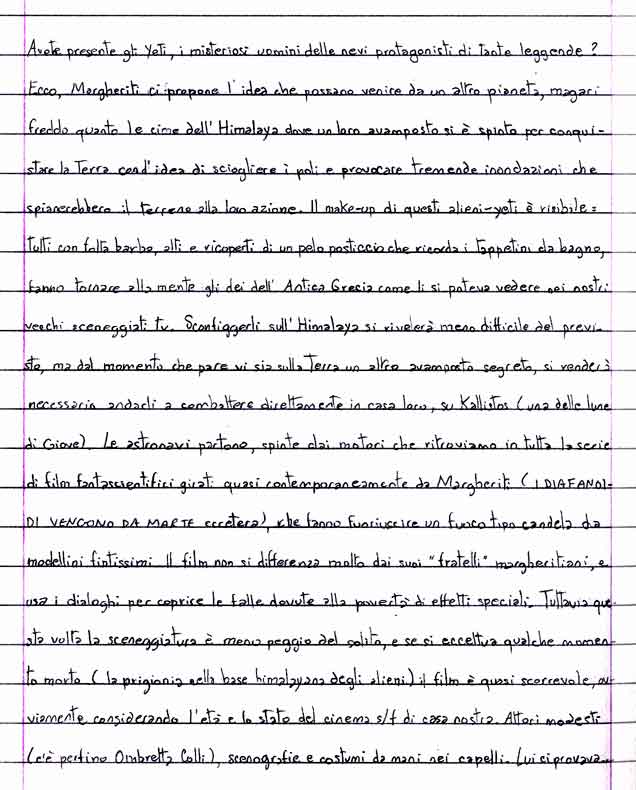 Avete presente gli Yeti, i misteriosi uomini delle nevi protagonisti di tante leggende?
Ecco, Margheriti ci propone l'idea che possano venire da un altro pianeta, magari
freddo quanto le cime dell'Himalaya dove un loro avamposto si è spinto per conqui-
stare la Terra cond'idea di sciogliere i poli e provocare tremende inondazioni che
spianerebbero il terreno alla loro azione. Il make-up di questi alieni-yeti è risibile:
tutti con folta barba, alti e ricoperti di un pelo posticcio che ricorda i tappetini da bagno,
fanno tornare alla mente gli dei dell'Antica Grecia come li si poteva vedere nei nostri
vecchi sceneggiati tv. Sconfiggerli sull'Himalaya si rivelerà meno difficile del previ-
sto, ma dal momento che pare vi sia sulla Terra un altro avamposto segreto, si renderà
necessario andarli a combattere direttamente in casa loro, su Kallistos (una delle lune
di Giove). Le astronavi partono, spinte dai motori che ritroviamo in tutta la serie
di film fantascientifici girati quasi contemporaneamente da Margheriti (I DIAFANOI-
DI VENGONO DA MARTE eccetera), che fanno fuoriuscire un fuoco tipo candela da
modellini fintissimi. Il film non si differenzia molto dai suoi "fratelli" margheritiani, e
usa i dialoghi per coprire le falle dovute alla povertà di effetti speciali. Tuttavia que-
sta volta la sceneggiatura è meno peggio del solito, e se si eccettua qualche momen-
to morto (la prigionia nella base himalayana degli alieni) il film è quasi scorrevole, ov-
viamente considerando l'età e lo stato del cinema s/f di casa nostra. Attori modesti
(c'è perfino Ombretta Colli), scenografie e costumi da mani nei capelli. Lui ci provava...